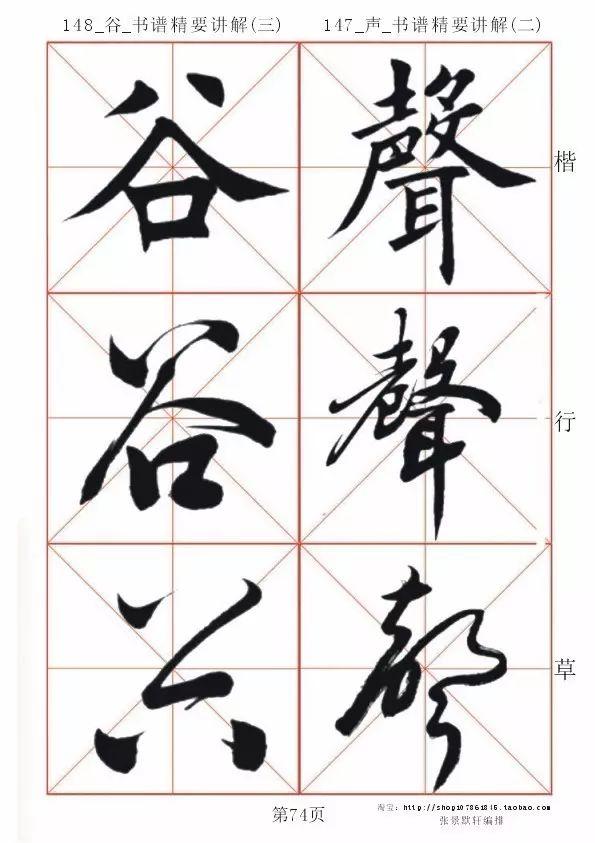 148_谷_书谱精要讲解(三) 147_声_书谱精要讲解(二)
谷 聲 楷
谷 聲 行
谷 聲 草
第74页
淘宝：http://shop107861815.taobao.com
张景默轩编排